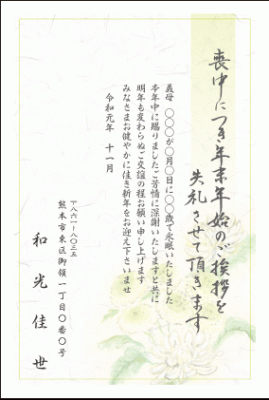 喪中につき年末年始のご挨拶を
失礼させて頂きます
義母 〇〇〇が〇月〇日に〇〇歳で永眠いたしました
本年中に賜りましたご芳情に深謝いたしますと共に
明年も変わらぬご交誼の程お願い申し上げます
みなさまお健やかに佳き新年をお迎え下さいませ
令和元年 十一月
〒八六一-八〇三五
熊本市東区御領一丁目〇番〇号
和光佳世